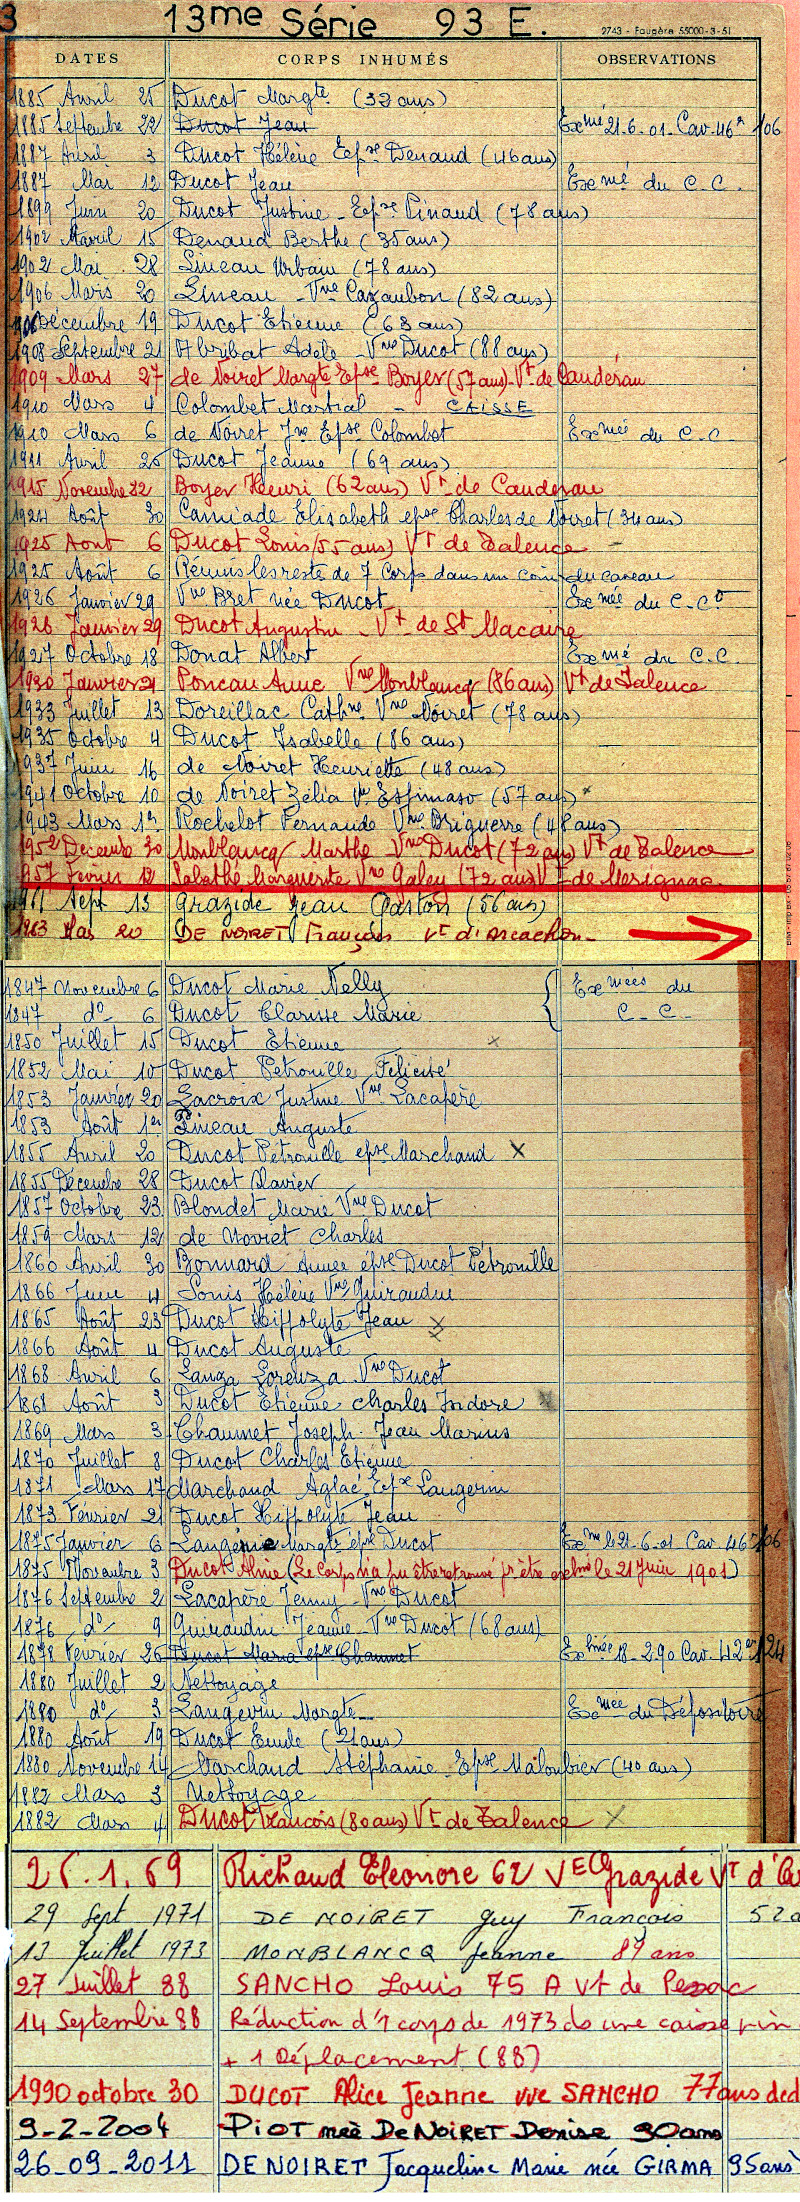 3 13me Série 93 E. 2743 - Fougère 55000-3-51
DATES CORPS INHUMÉS OBSERVATIONS
1885 Avril 25 Ducot Margte (32 ans)
1885 Septembre 22 Ducot Jean Exmé 21.6.01. Cav. 46 106
1887 Avril 3 Ducot Hélène Epse Denaud (46 ans)
1887 Mai 12 Ducot Jean Exmé du C.C.
1899 Juin 20 Ducot Justine - Epse Pinaud (78 ans)
1902 Avril 15 Denaud Berthe (35 ans)
1902 Mai 28 Lineau Urbain (78 ans)
1906 Mars 20 Lineau - Vve Cazaubon (82 ans)
1906 Décembre 19 Ducot Etienne (63 ans)
1908 Septembre 21 Abribat Adèle - Vve Ducot (88 ans)
1909 Mars 27 de Noiret Margte Epse Boyer (57 ans) - Vt de Caudéran
1910 Mars 4 Colombet Martial - CAISSE
1910 Mars 6 de Noiret Jne Epse Colombet Exmée du C.C.
1911 Avril 25 Ducot Jeanne (69 ans)
1915 Novembre 22 Boyer Henri (62 ans) Vt de Caudéran
1924 Août 30 Camiade Elisabeth epse Charles de Noiret (34 ans)
1925 Aout 6 Ducot Louis (55 ans) Vt de Talence
1925 Août 6 Réunis les reste de 7 Corps dans un coin du caveau
1926 Janvier 29 Vve Bret née Ducot Exmée du C.C.
1926 Janvier 29 Ducot Augustin - Vt de St Macaire
1927 Octobre 18 Donat Albert Exmé du C.C.
1930 Janvier 21 Poncau Anne Vve Monblancq (86 ans) Vt de Talence
1933 Juillet 13 Doreillac Cathne Vve Noiret (78 ans)
1935 Octobre 4 Ducot Isabelle (86 ans)
1937 Juin 16 de Noiret Henriette (48 ans)
1941 Octobre 10 de Noiret Zélia Vve Espinaso (57 ans)
1943 Mars 1er Rochelot Fernande Vve Briguerre (48 ans)
1952 Décembre 30 Monblancq Marthe Vve Ducot (72 ans) Vt de Talence
1957 Février 12 Labathe Marguerite Vve Galey (72 ans) Vt de Merignac
1961 Sept 13 Grazide Jean Gaston (56 ans)
1963 Mai 20 DE NOIRET François Vt d'Arcachon
1847 Novembre 6 Ducot Marie Nelly Exmées du
1847 do 6 Ducot Clarisse Marie C.C.
1850 Juillet 15 Ducot Etienne x
1852 Mai 10 Ducot Pétronille Félicité
1853 Janvier 20 Lacroix Justine Vve Lacapère
1853 Août 1er Pineau Auguste
1855 Avril 20 Ducot Pétronille epse Marchand x
1855 Décembre 28 Ducot Xavier
1857 Octobre 23 Blondet Marie Vve Ducot
1859 Mars 12 de Noviet Charles
1860 Avril 30 Bonnard Aimée épse Ducot Pétronille
1866 Juin 4 Sonis Hélène Vve Guiraudin
1865 Août 23 Ducot Hippolyte Jean x
1866 Août 4 Ducot Auguste x
1868 Avril 6 Langa Lorenza Vve Ducot
1868 Août 3 Ducot Etienne Charles Isidore
1869 Mars 3 Chaumet Joseph Jean Marius
1870 Juillet 8 Ducot Charles Etienne
1871 Mars 17 Marchand Aglaé Epse Laugerin
1873 Février 21 Ducot Hippolyte Jean
1875 Janvier 6 Margte épse Ducot Exmé le 21-6-01 Cav. 46 106
1875 Novembre 3 Ducot Aline (Le Corps n'a pu être retrouvé pr être exhmé le 21 Juin 1901)
1876 Septembre 2 Lacapère Jenny - Vve Ducot
1876 do 9 Guiraudin Jeanne - Vve Ducot (68 ans)
1878 Février 26 Ducot Maria epse Chaumet Exhmée 18-2-90 Cav. 42 124
1880 Juillet 2 Nettoyage
1880 do 3 Langevin Margte Exmée du Dépositoire
1880 Août 19 Ducot Emile (21 ans)
1880 Novembre 14 Marchand Stéphanie Epse Maloubier (40 ans)
1882 Mars 3 Nettoyage
1882 Mars 4 Ducot François (80 ans) Vt de Talence x
25.1.69 Richaud Eleonore 62 Vve Grazide Vt d'
29 Sept 1971 DE NOIRET Guy François 52
13 Juillet 1973 MONBLANCQ Jeanne 87 ans
27 Juillet 88 SANCHO Louis 75 A Vt de Pessac
14 Septembre 88 Réduction d'1 corps de 1973 ds une caisse
+ 1 Déplacement (88)
1990 octobre 30 DUCOT Alice Jeanne vve SANCHO 77 ans
9-2-2004 PIOT née De NOIRET Denise 90 ans
26-09-2011 DE NOIRET Jacqueline Marie née GIRMA 95 ans